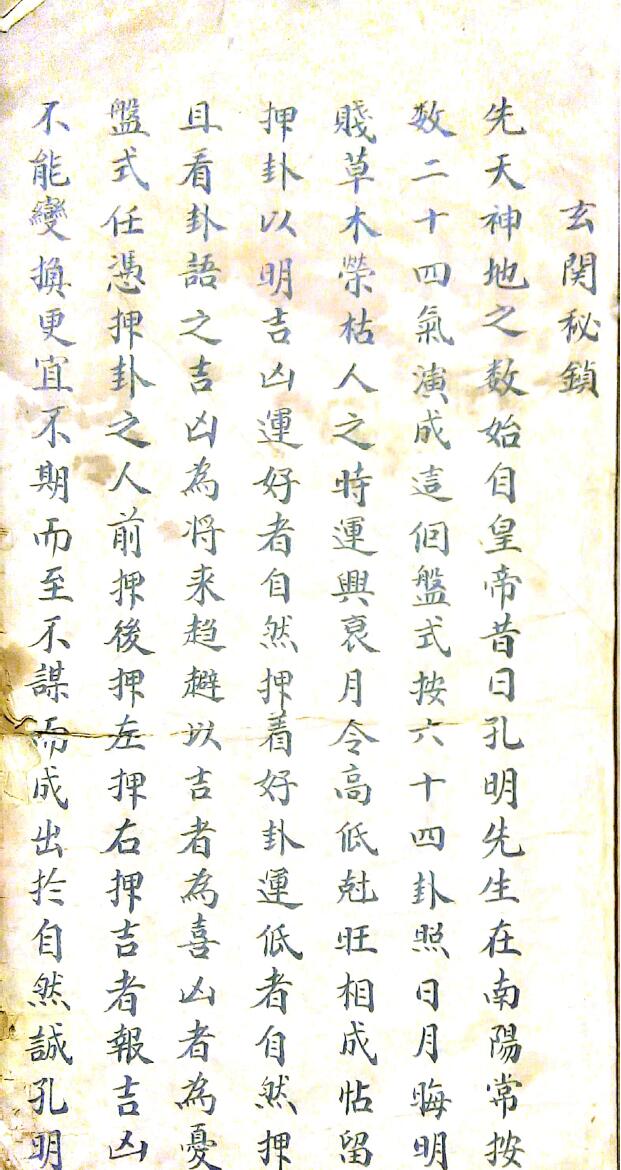 玄関秘鎖
先天神地之数始自皇帝昔日孔明先生在南陽常按
数二十四氣演成這佪盤式按六十四卦照日月晦明
賤草木榮枯人之時運興衰月令高低尅旺相成帖留
押卦以明吉凶運好者自然押着好卦運低者自然押
且看卦語之吉凶為将来趋避以吉者為喜凶者為憂
盤式任憑押卦之人前押後押左押右押吉者報吉凶
不能變換更宜不期而至不謀而成出扵自然誠孔明